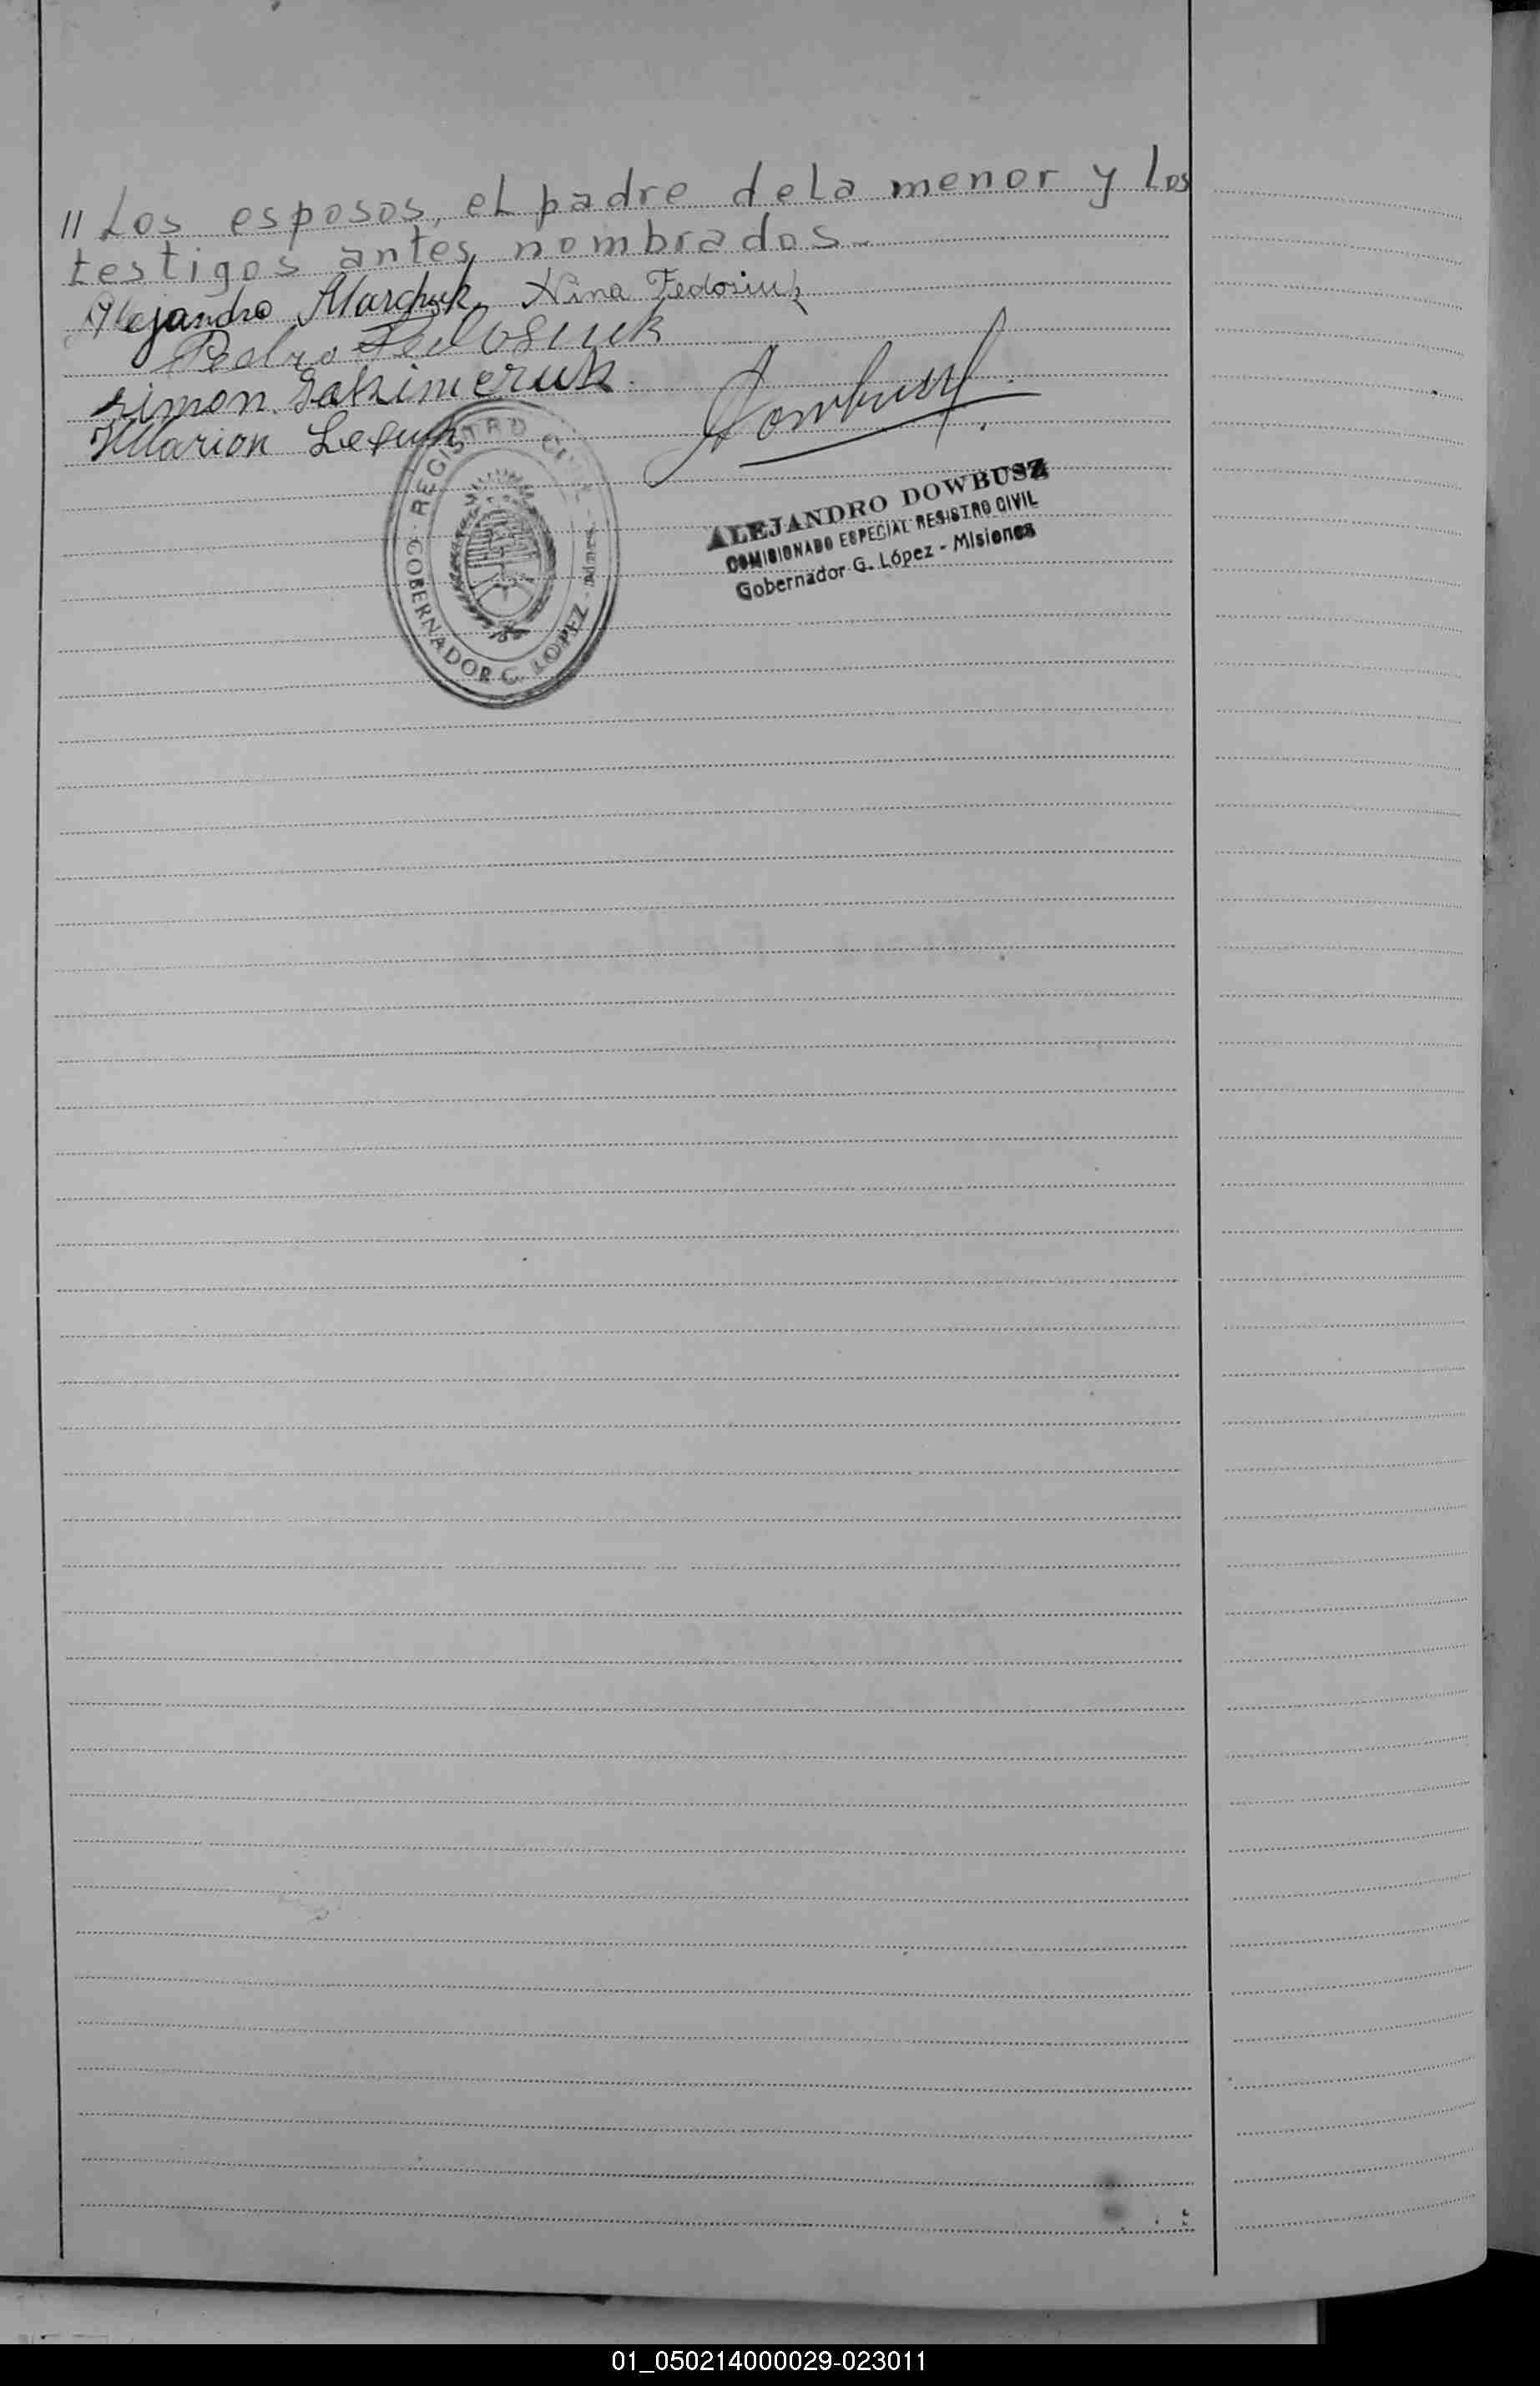 // Los esposos, el padre dela menor y los
testigos antes nombrados.-
Alejandro Marchuk, Nina Fedosiuk
Pedro Fedosiuk
Simon Jakimczuk.
Illarion
Dowbusz
REGISTRO CIVIL
GOBERNADOR G. LOPEZ - Mnes.
ALEJANDRO DOWBUSZ
COMISIONADO ESPECIAL REGISTRO CIVIL
Gobernador G. López - Misiones
01_050214000029-023011